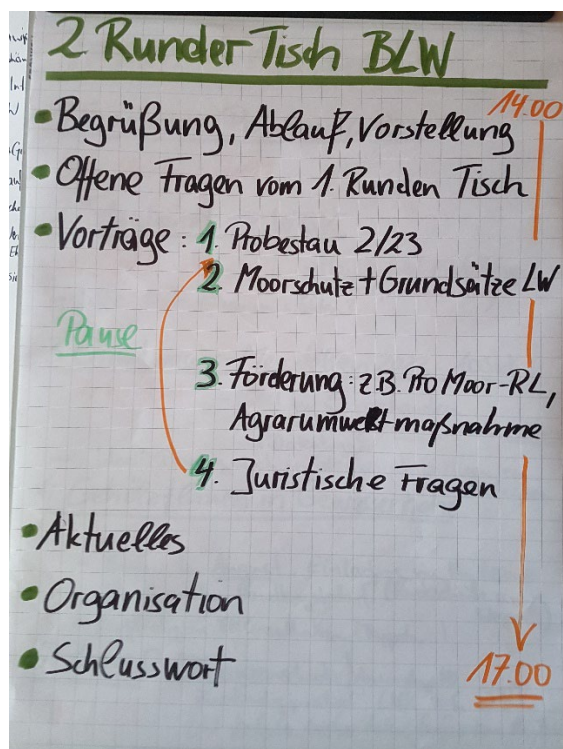 2. Runder Tisch BLW
14.00
• Begrüßung, Ablauf, Vorstellung
• Offene Fragen vom 1. Runden Tisch
• Vorträge: 1. Probestau 2/23
2. Moorschutz + Grundsätze LW
Pause
3. Förderung: z.B. Pro Moor-RL,
Agrarumweltmaßnahme
4. Juristische Fragen
• Aktuelles
• Organisation
• Schlusswort
17.00